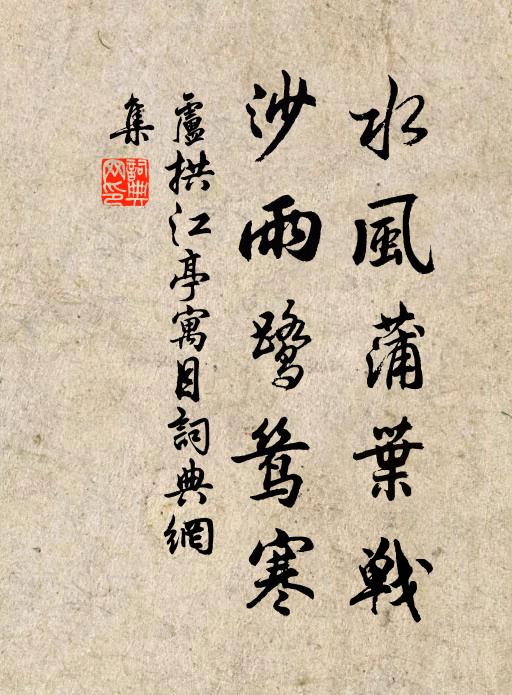 水風蒲葉戰
沙雨鷺鴛寒
盧拱江亭寓目詞典網
集
詞典網印